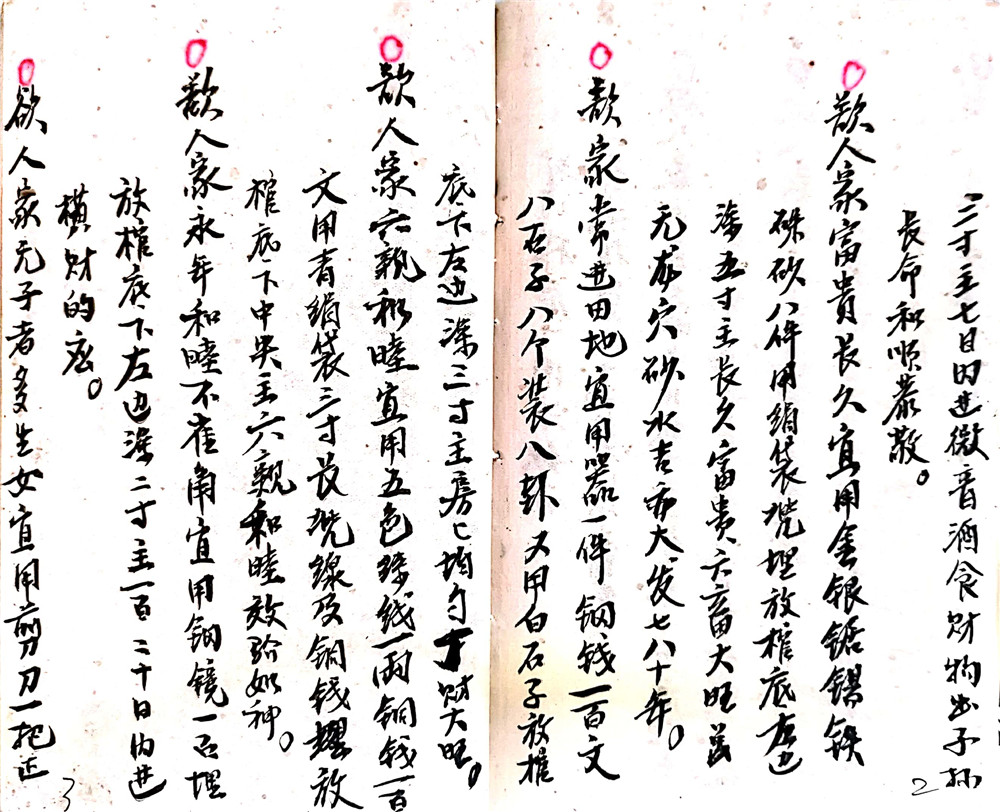 二寸主七日因进微音酒食财物出子孙
长命和顺恭敬。
歀人家富貴长久宜用金银锯锡铁
硃砂八件用绢袋埋放棺底左边
深五寸主长久富贵六畜大旺
无穴砂水吉亦大发七八十年。
歀家常进田地宜用器一件铜钱一百文
八石子八个装八卦又用白石子放棺
2
底下左边深三寸主房七均匀丁财大旺。
歀人家六親和睦宜用五色线一两铜钱一百
文用青绢袋三寸長线及铜钱放
棺底下中央主六親和睦效验如神。
歀人家永年和睦不雀角宜用铜镜一百埋
放棺底下左边深二寸主一百二十日内进
横财的应。
欲人家无子者多生女宜用剪刀一把
3